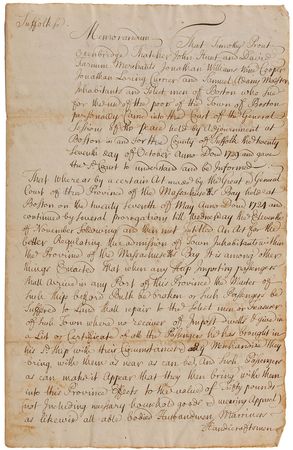 Suffolk ss.
Memorandum That Timothy Prout
Oxenbridge Thatcher John Hunt and David
Farnum Merchants Jonathan Williams Wine Cooper
Jonathan Loring Currier and Samuel Adams Maltster
Inhabitants and Select men of Boston who sue
for the use of the poor of the Town of Boston
personally came into the Court of the General
Sessions of the peace held by Adjournment at
Boston in and for the County of Suffolk the twenty
seventh day of October Anno Dom 1729 and gave
the sd. Court to understand and be Informed
That whereas by a certain Act made by the Great & General
Court of the Province of the Massachusetts Bay held at
Boston on the twenty seventh of May Anno Dom 1724 and
continued by several prorogations till Wednesday the Eleventh
of November following and then met Intitled An Act for the
better Regulating the admission of Town Inhabitants within
the Province of the Massachusetts Bay It is among other
things Enacted That when any Ship importing passengers
Shall Arrive in any Port of this Province the Master of
such Ship before Bulk be broken or such Passengers be
suffered to Land shall repair to the Select men or Treasurer
of such Town where no receiver of Impost dwells & Give in
a List or Certificate of all the Passengers he has brought in
his sd. Ship with their Circumstances & Merchandize they
bring with them as near as can be, And such Passengers
as can make it Appear that they then bring with them
into this Province Effects to the value of Fifty pounds
(not Including necessary household goods & wearing Apparel
as likewise all able bodied Husbandmen, Marriners
Handicraftsmen